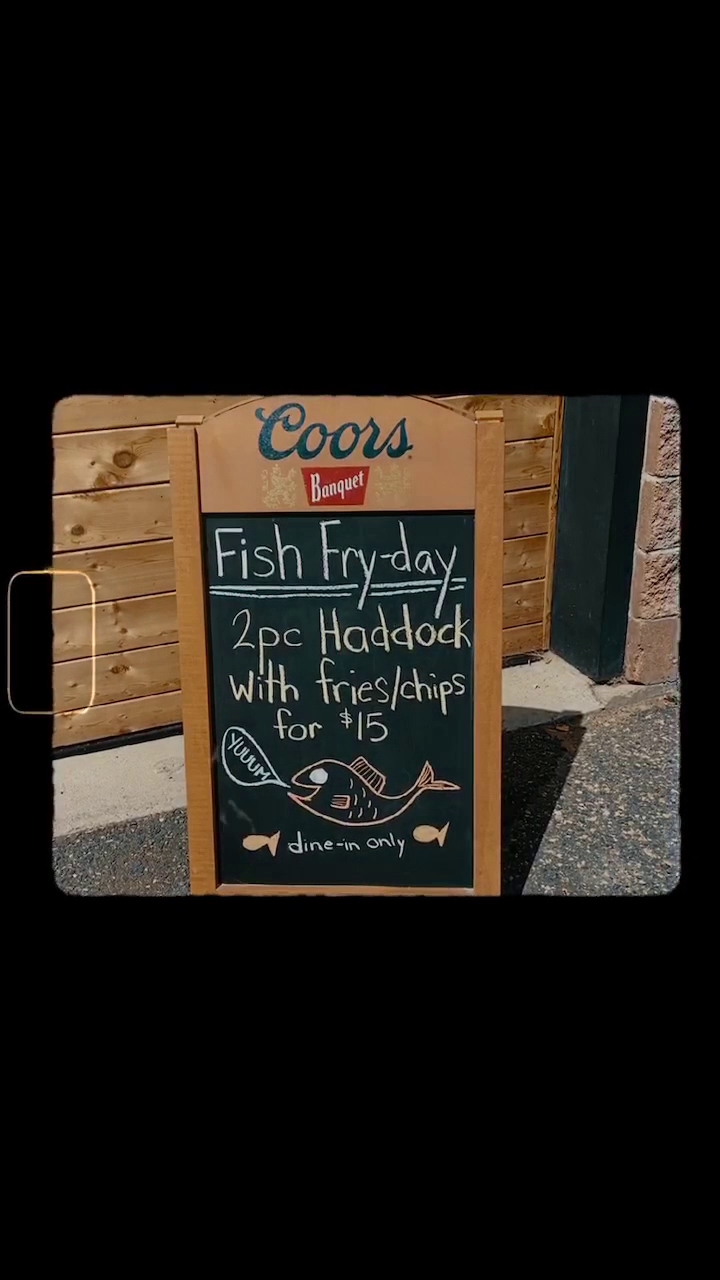 Coors
Banquet
Fish Fry-day
2pc Haddock
with fries/chips
for $15
YUUUM
dine-in only